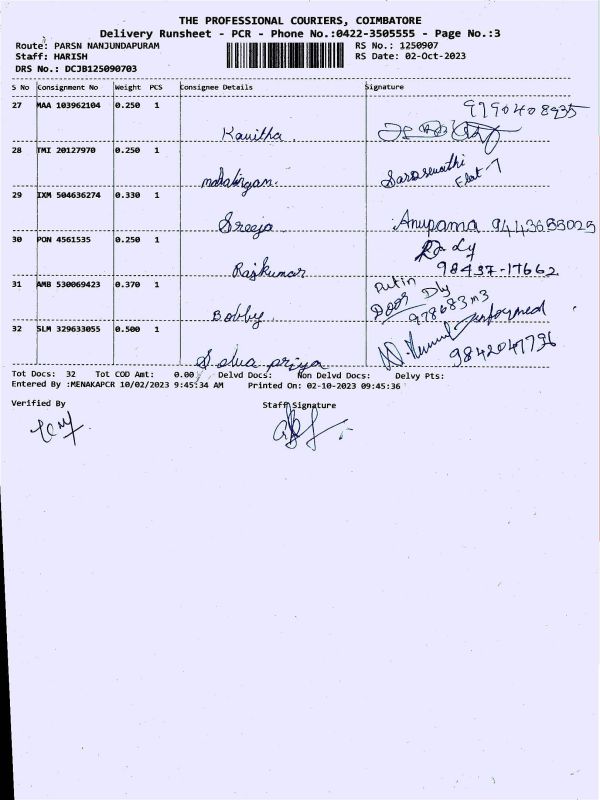 THE PROFESSIONAL COURIERS, COIMBATORE
Delivery Runsheet - PCR - Phone No.:0422-3505555 - Page No.:3
Route: PARSN NANJUNDAPURAM
RS No.: 1250907
Staff: HARISH
RS Date: 02-Oct-2023
DRS No.: DCJB125090703
S No Consignment No Weight PCS Consignee Details Signature
27 MAA 103962104 0.250 1
Kavitha
9790408935
28 TMI 20127970 0.250 1
mahalingam.
Saraswathi
Flat-7
29 IXM 504636274 0.330 1
Sreeja
Anupama 9443655025
30 PON 4561535 0.250 1
Rajkumar
98437-17662
31 AMB 530069423 0.370 1
Bobby
Door Dly
32 SLM 329633055 0.500 1
priya
informed
9842047796
Tot Docs: 32 Tot COD Amt: 0.00 Delvd Docs: Non Delvd Docs: Delvy Pts:
Entered By :MENAKAPCR 10/02/2023 9:45:34 AM Printed On: 02-10-2023 09:45:36
Verified By
Staff Signature